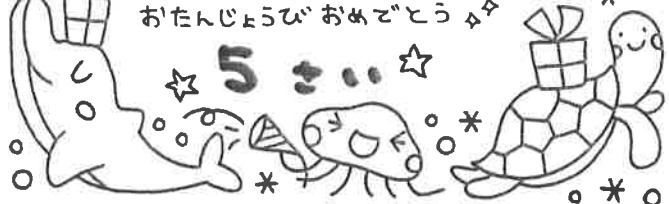 おたんじょうび おめでとう
5 さい